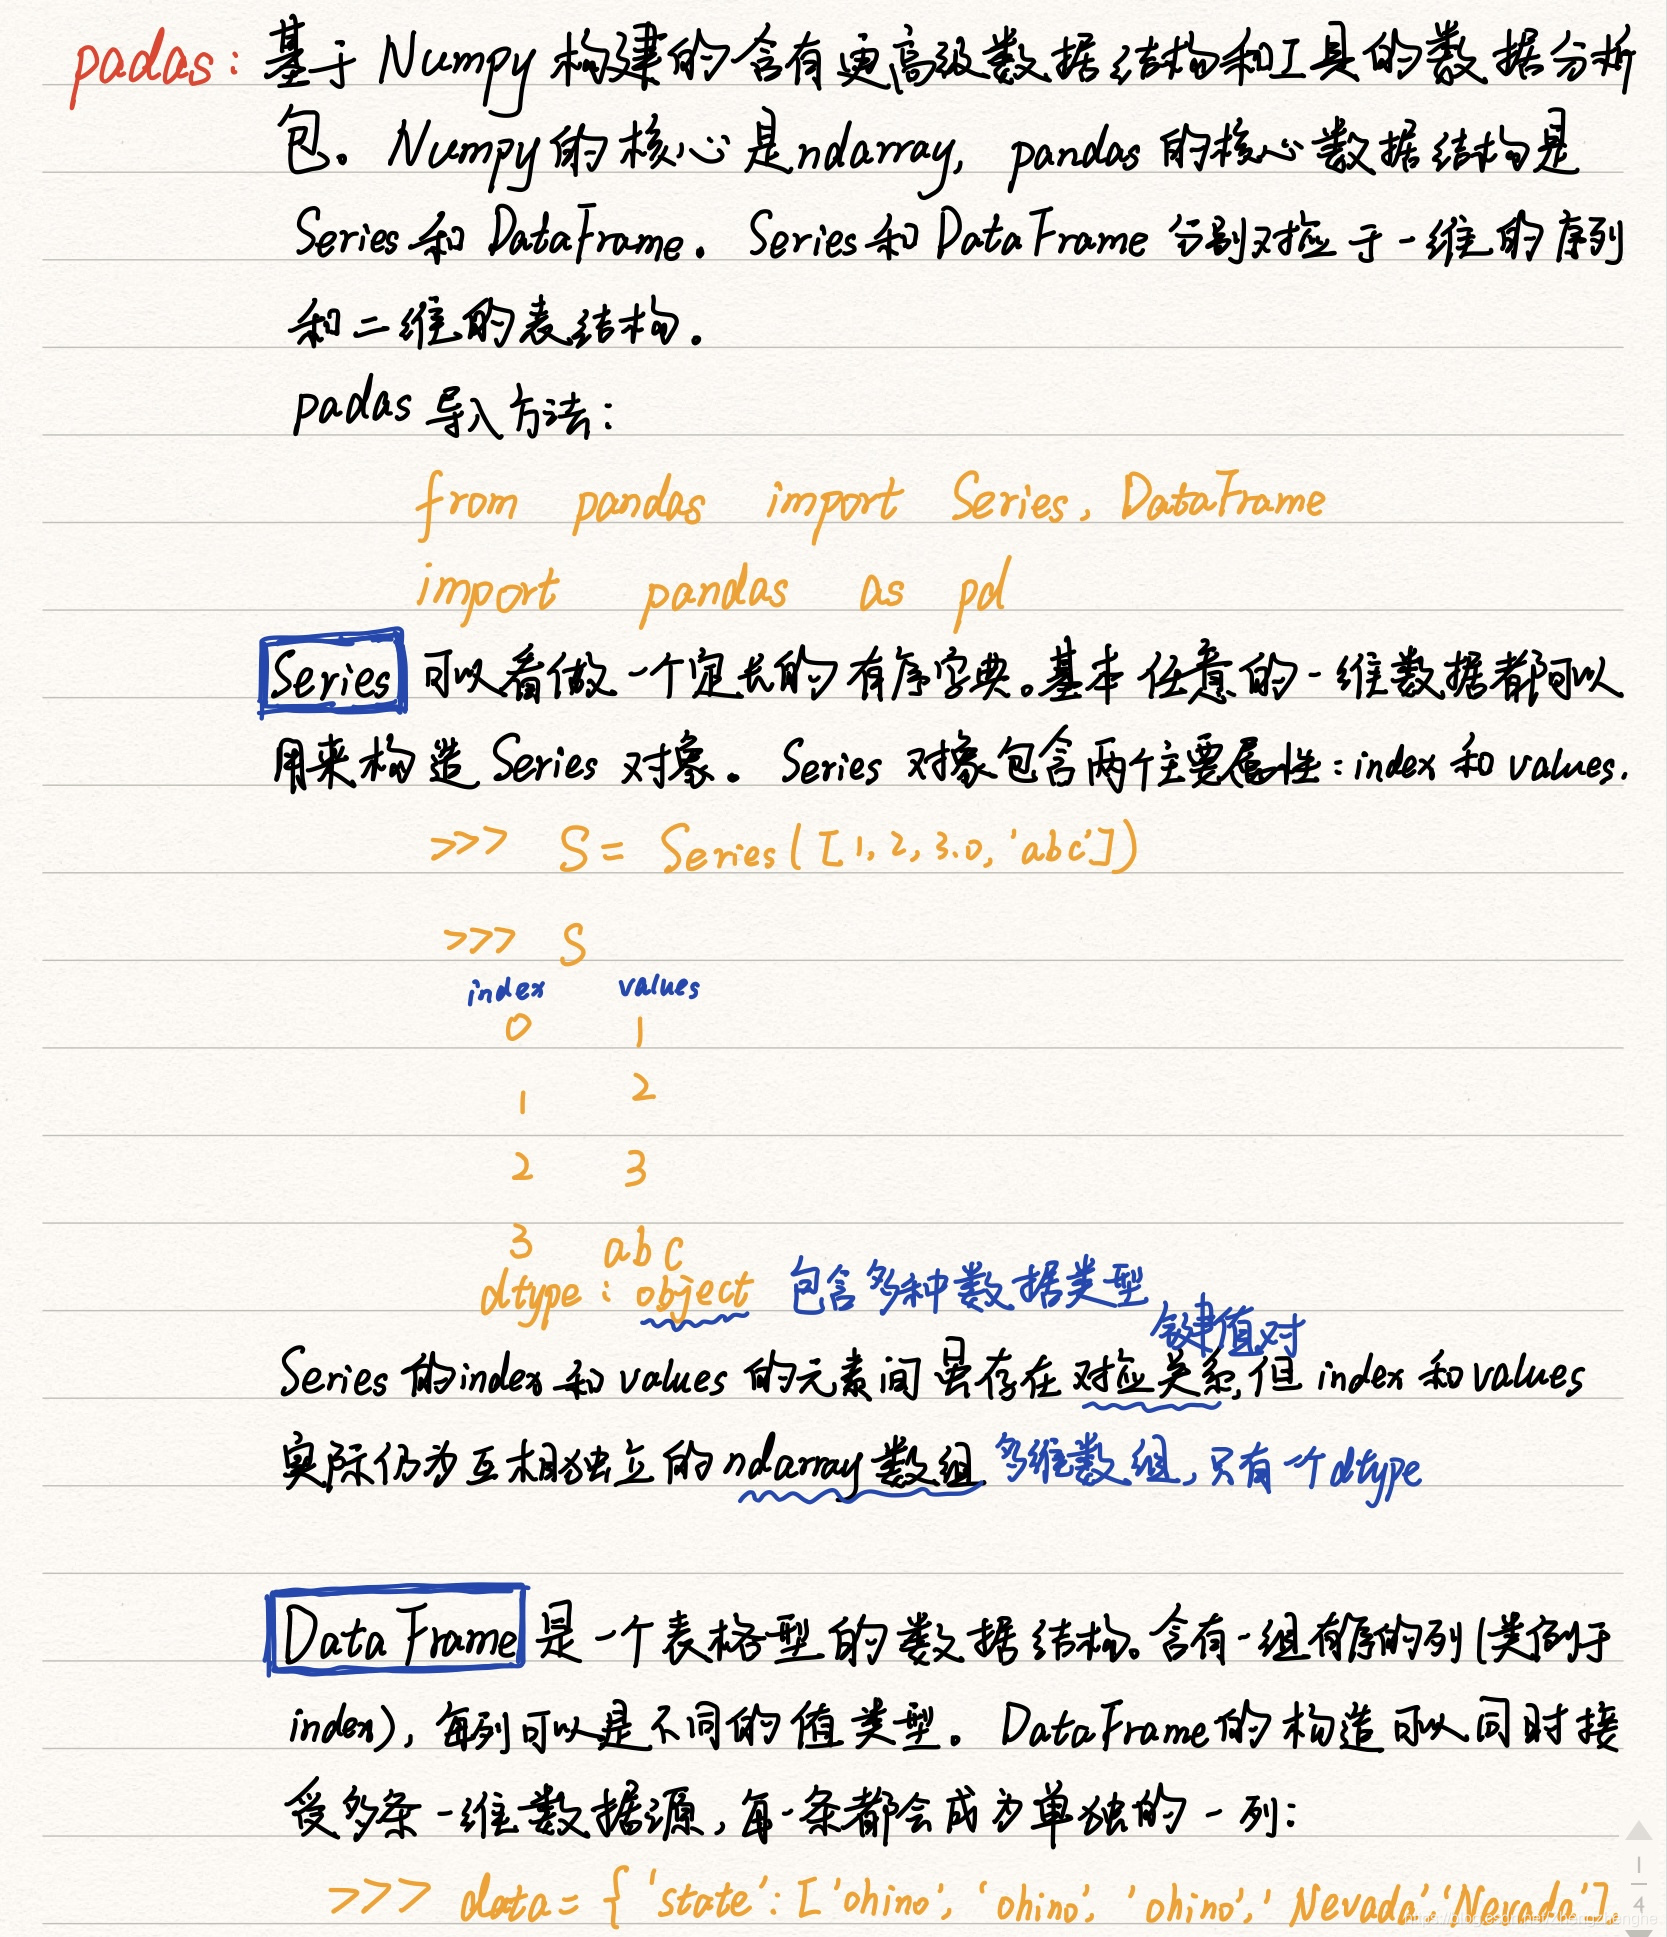 padas: 基于 Numpy 构建的含有更高级数据结构和工具的数据分析
包。Numpy的核心是ndarray, pandas的核心数据结构是
Series和DataFrame. Series和DataFrame分别对应于一维的序列
和二维的表结构.
padas 导入方法:
from pandas import Series, DataFrame
import pandas as pd
Series 可以看做一个定长的有序字典。基本任意的一维数据都可以
用来构造 Series 对象。Series 对象包含两个主要属性:index和values.
>>> S= Series([1,2,3.0,'abc'])
>>> S
index values
0 1
1 2
2 3
3 abc
dtype: object 包含多种数据类型
键值对
Series的index和values的元素间虽存在对应关系,但index和values
实际仍为互相独立的ndarray数组 多维数组,只有一个dtype
DataFrame 是一个表格型的数据结构。含有一组有序的列(类似于
index), 每列可以是不同的值类型。DataFrame的构造可以同时接
受多条一维数据源,每一条都会成为单独的一列:
>>> data= {'state': ['ohino', 'ohino', 'ohino', 'Nevada','Nevada'],
1
4